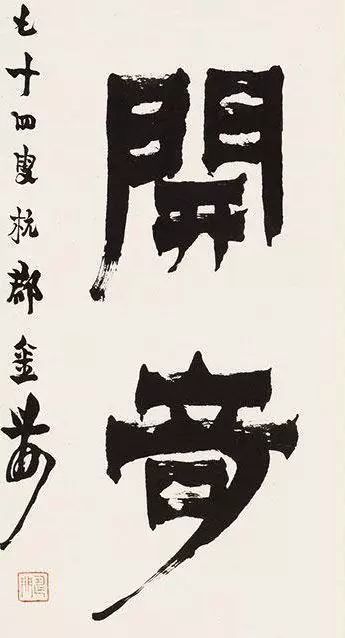 開夢
七十四叟杭郡金農